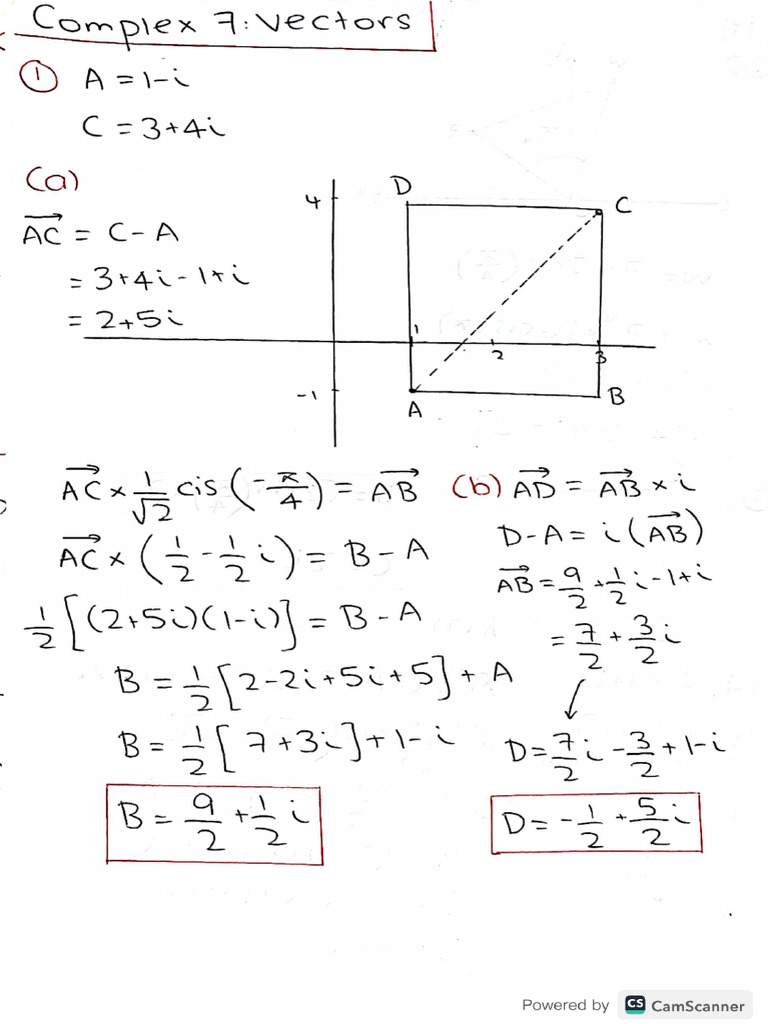 Complex 7: Vectors
① A = 1-i
C = 3+4i
(a)
AC→ = C - A
= 3+4i-1+i
= 2+5i
D
4
C
1
2
3
-1
A
B
AC→ × 1/√2 cis(-π/4) = AB→
AC→ × (1/2 - 1/2 i) = B - A
1/2[(2+5i)(1-i)] = B - A
B = 1/2[2-2i+5i+5] + A
B = 1/2[7+3i]+1-i
B = 9/2 + 1/2 i
(b) AD→ = AB→ × i
D-A = i(AB→)
AB→ = 9/2 + 1/2 i - 1+i
= 7/2 + 3/2 i
D = 7/2 i - 3/2 + 1-i
D = -1/2 + 5/2 i
Powered by CS CamScanner